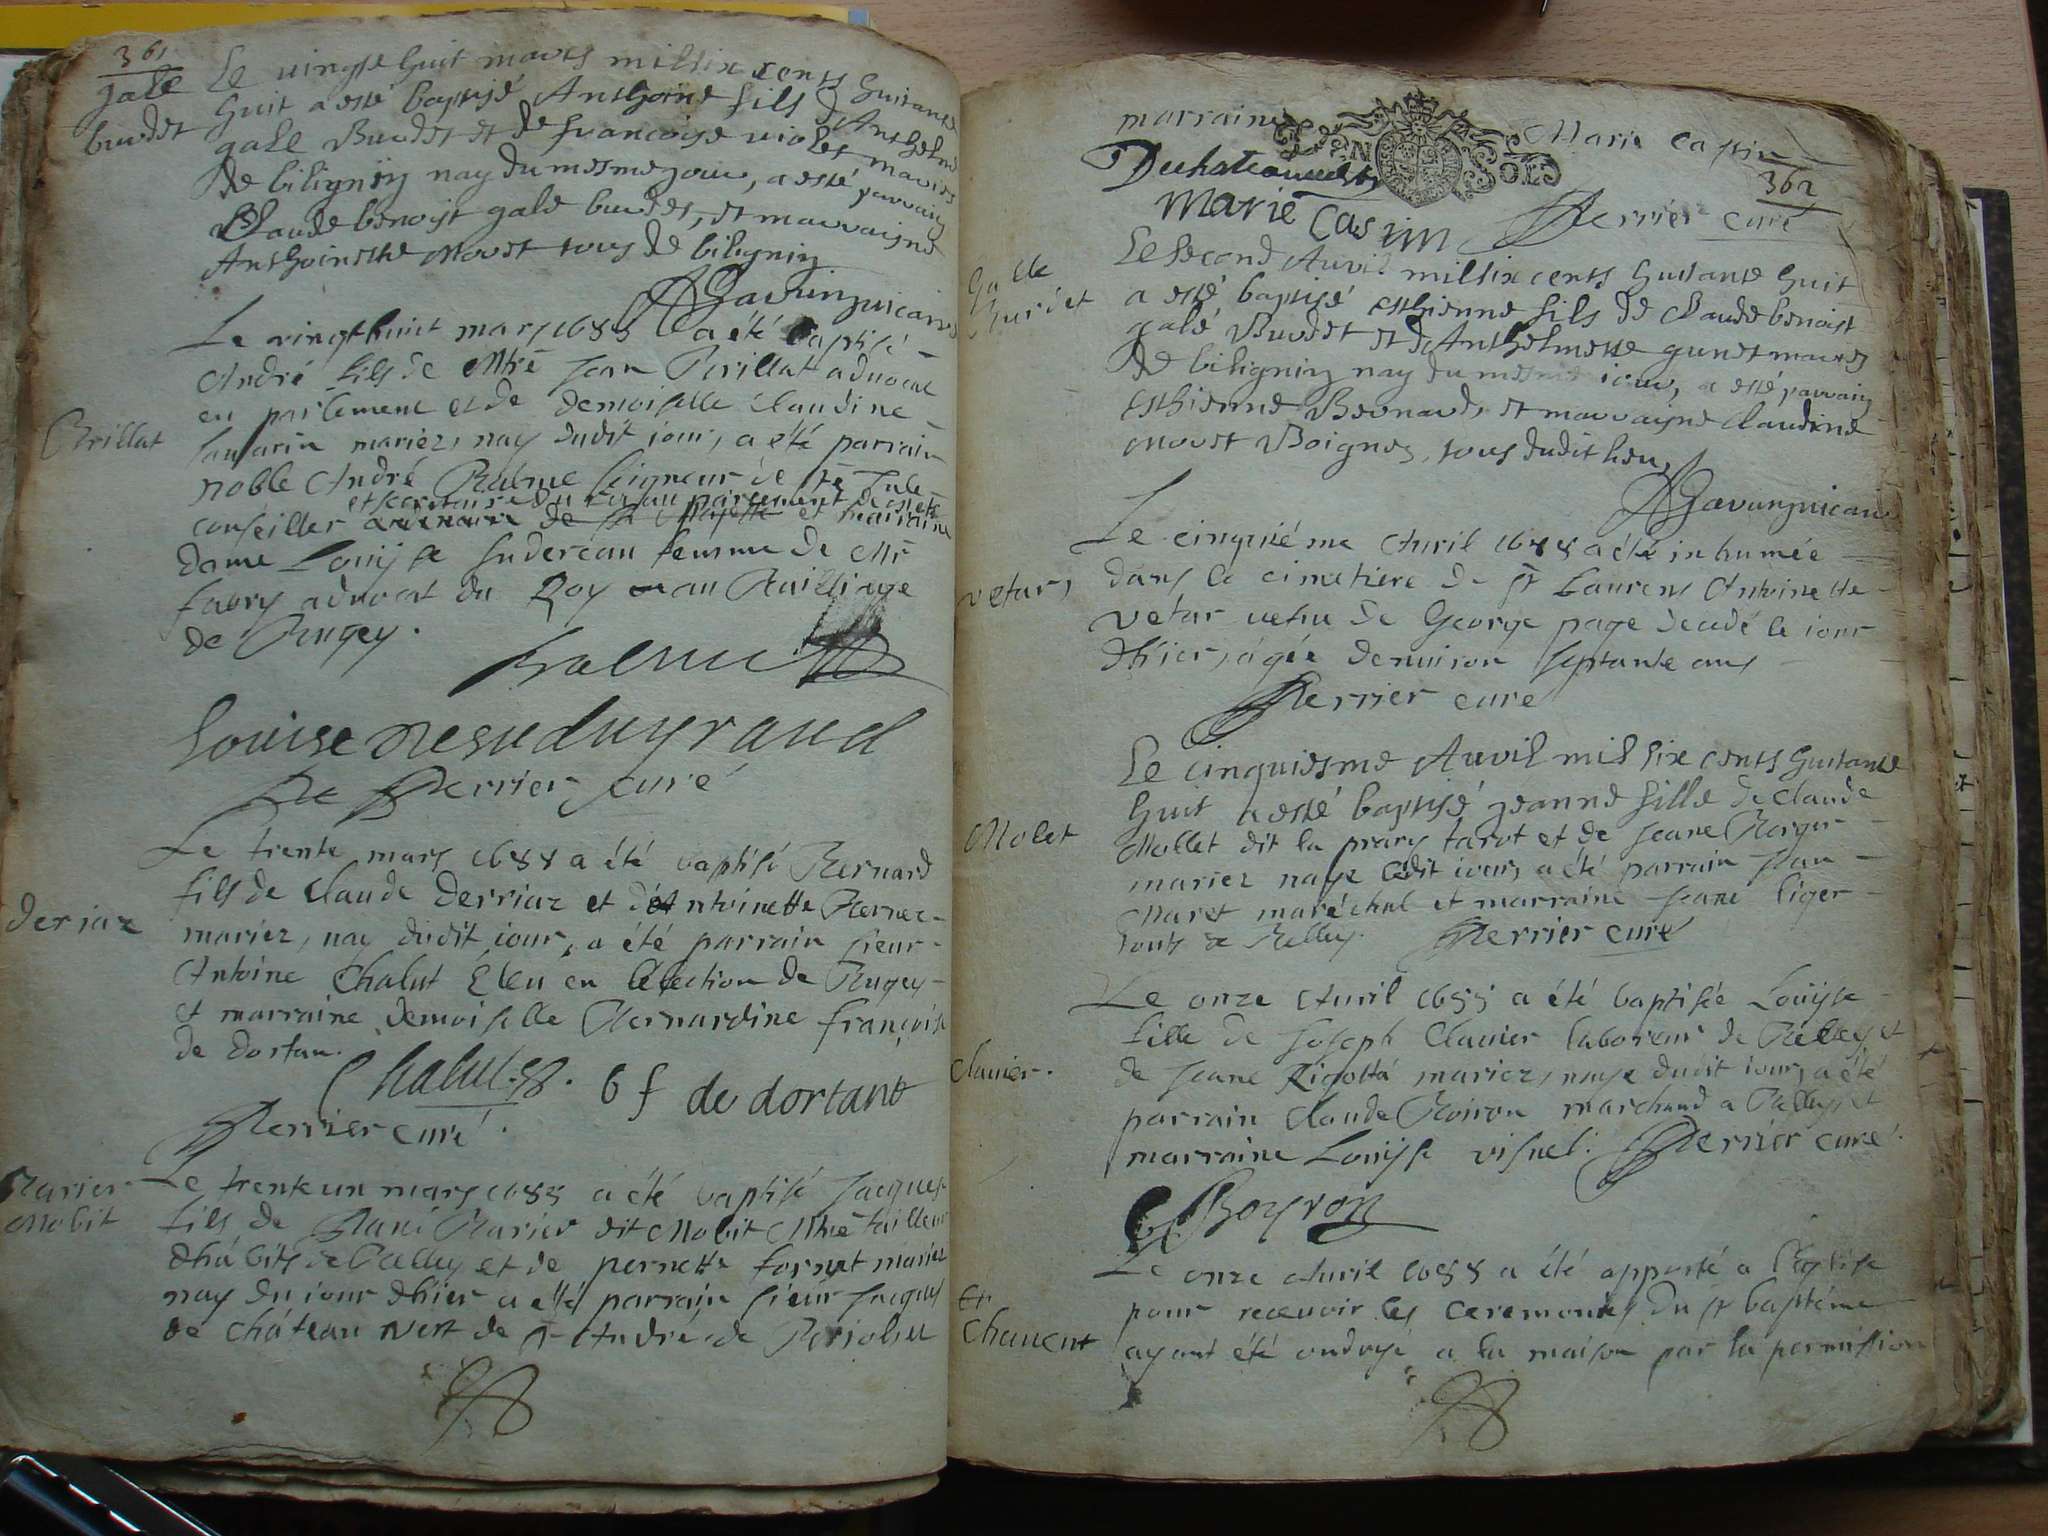 361
gale
burdet
Le vingt huit mars mil six cents huitante
huit a esté baptisé Anthoine fils d'Anthelme
gale Burdet et de francoise violet mariés
de biligniin nay du mesme jour, a esté parrain
Claude benoist gale burdet, et marrayne
Anthoinette Moret tous de bilignin
Savarin vicaire
Le vingthuict mars 1688 a été baptisé
Brillat
André fils de Mtre Jean Brillat advocat
en parlement et de demoiselle Claudine
Savarin mariez, nay dudit iour, a été parrain
noble André Balme seigneur de Ste Julie
et secretaire du roy au parlement de
conseiller et marraine
dame Louyse femme de Mr
fabry advocat du Roy au Bailliage
de Bugey.
Balme
Louise
Perrier curé
Le trente mars 1688 a été baptisé Bernard
deriaz
fils de Claude Derriaz et d'Antoinette
mariez, nay dudit iour, a été parrain sieur
Antoine Chalut Eleu en lelection de Bugey
et marraine demoiselle Bernardine françoise
de dortan.
Chalut
b f de dortant
Perrier curé
Barier
Mobit
Le trente un mars 1688 a été baptisé Jacques
fils de René Barier dit Mobit Mtre tailleur
dhabits de Belley et de pernette fornet mariez
nay du iour dhier a esté parrain sieur Jacques
de château vert de St André de
marraine Marie Cassin
362
Duchateauvert
Marie Cassin
Perrier curé
Galle
Burdet
Le second Avril mil six cents huitante huit
a esté baptisé esthienne fils de Claude benoist
gale Burdet et d'Anthelmette gunet mariés
de bilignin nay du mesme iour, a esté parrain
Esthienne Bernard, et marrayne Claudine
Moret Boignes, tous dudit lieu
Savarin vicaire
Le cinquiéme Avril 1688 a été inhumée
vetar
dans le cimetiere de St Laurens Antoinette
vetar vefue de George page decedé le iour
dhier, agée denuiron septante ans
Perrier curé
Le cinquiesme Avril mil six cents huitante
huit a esté baptisé jeanne fille de Claude
Molet
Mollet dit la prary tarot et de Jeane Roger
mariez naye ledit iour, a été parrain Jean
Maret maréchal et marraine Jeane liger
touts de Belley. Perrier curé
Le onze Avril 1688 a été baptisée Louyse
fille de Joseph Clavier laboreur de Belley et
Clavier.
de Jeane Rigolta mariez, naye dudit iour, a été
parrain Claude Boiron marchand a Belley et
marraine Louyse visnel. Perrier curé.
C Boyron
Le onze Avril 1688 a été apporté a l'Eglise
Chancent
pour recevoir les ceremonies du St baptéme
ayant été ondoyé a la maison par la permission